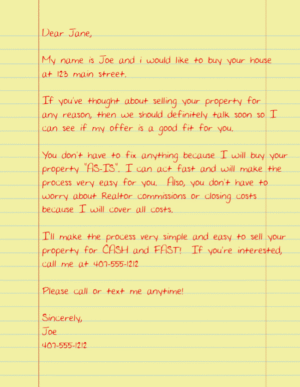 Dear Jane,
My name is Joe and i would like to buy your house
at 123 main street.
If you've thought about selling your property for
any reason, then we should definitely talk soon so I
can see if my offer is a good fit for you.
You don't have to fix anything because I will buy your
property "AS-IS". I can act fast and will make the
process very easy for you. Also, you don't have to
worry about Realtor commissions or closing costs
because I will cover all costs.
I'll make the process very simple and easy to sell your
property for CASH and FAST! If you're interested,
call me at 407-555-1212
Please call or text me anytime!
Sincerely,
Joe
407-555-1212